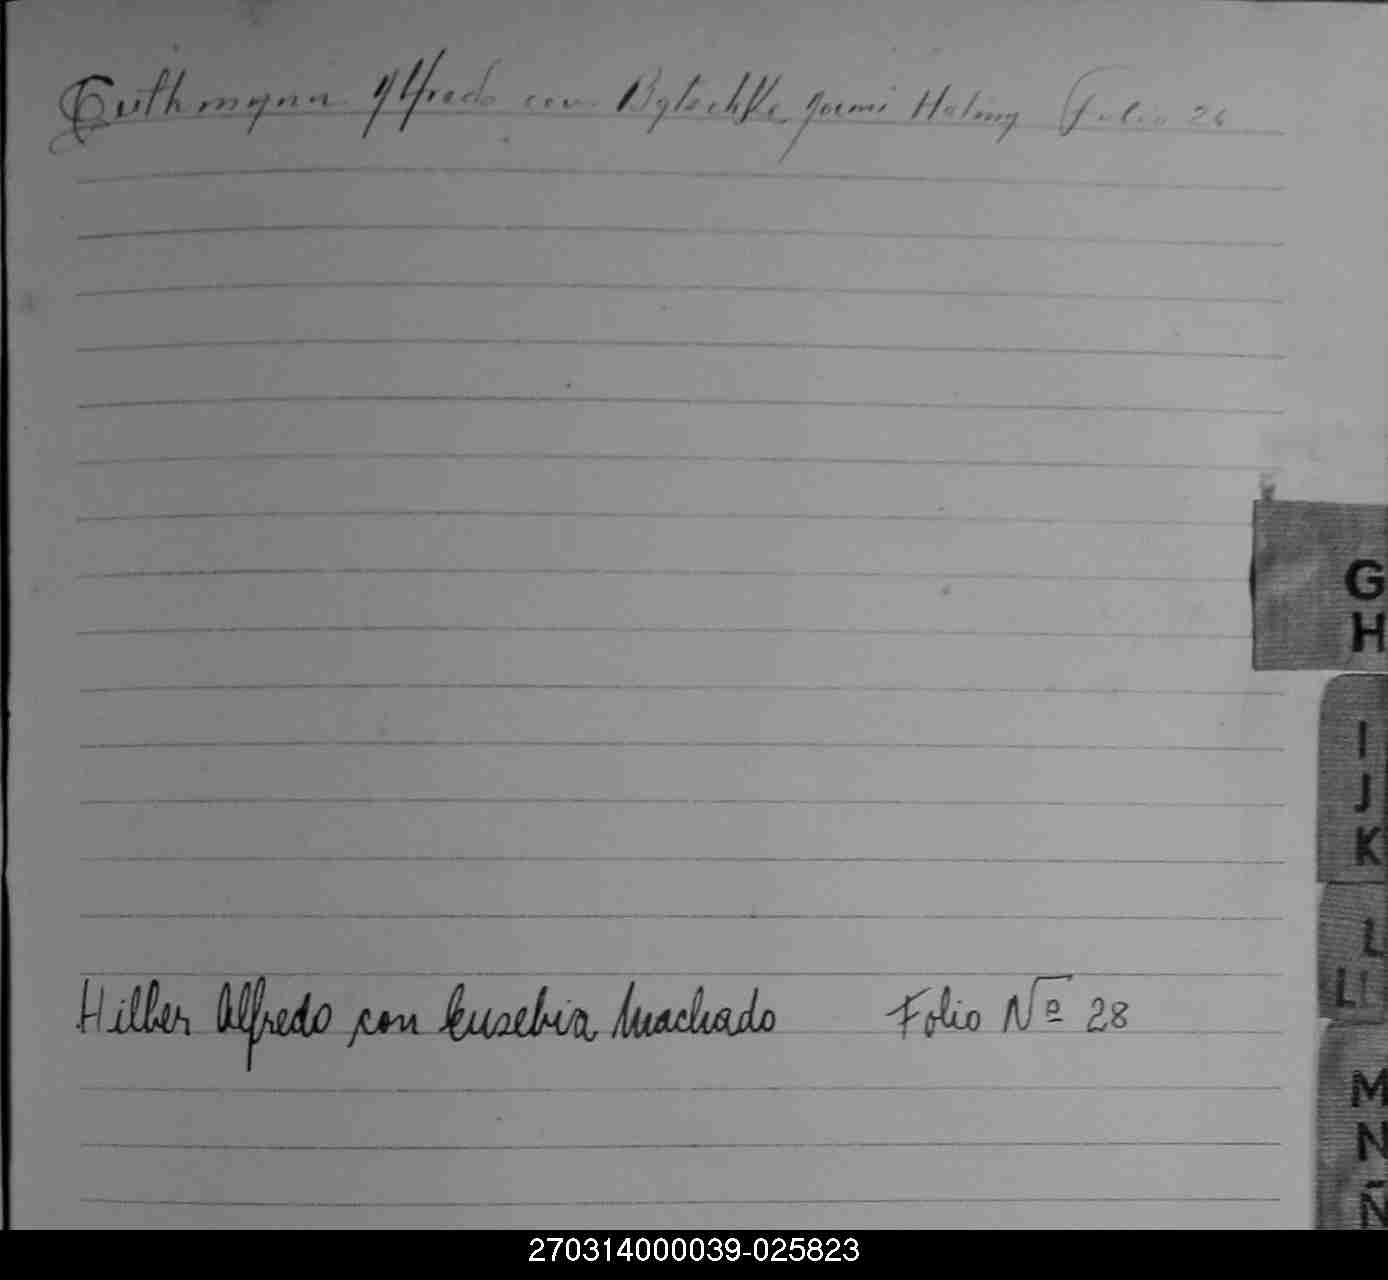 Guthmann Alfredo con Noemi Folio 26
G
H
I
J
K
L
LL
Hilber Alfredo con Eusebia Machado Folio Nº 28
M
N
Ñ
270314000039-025823